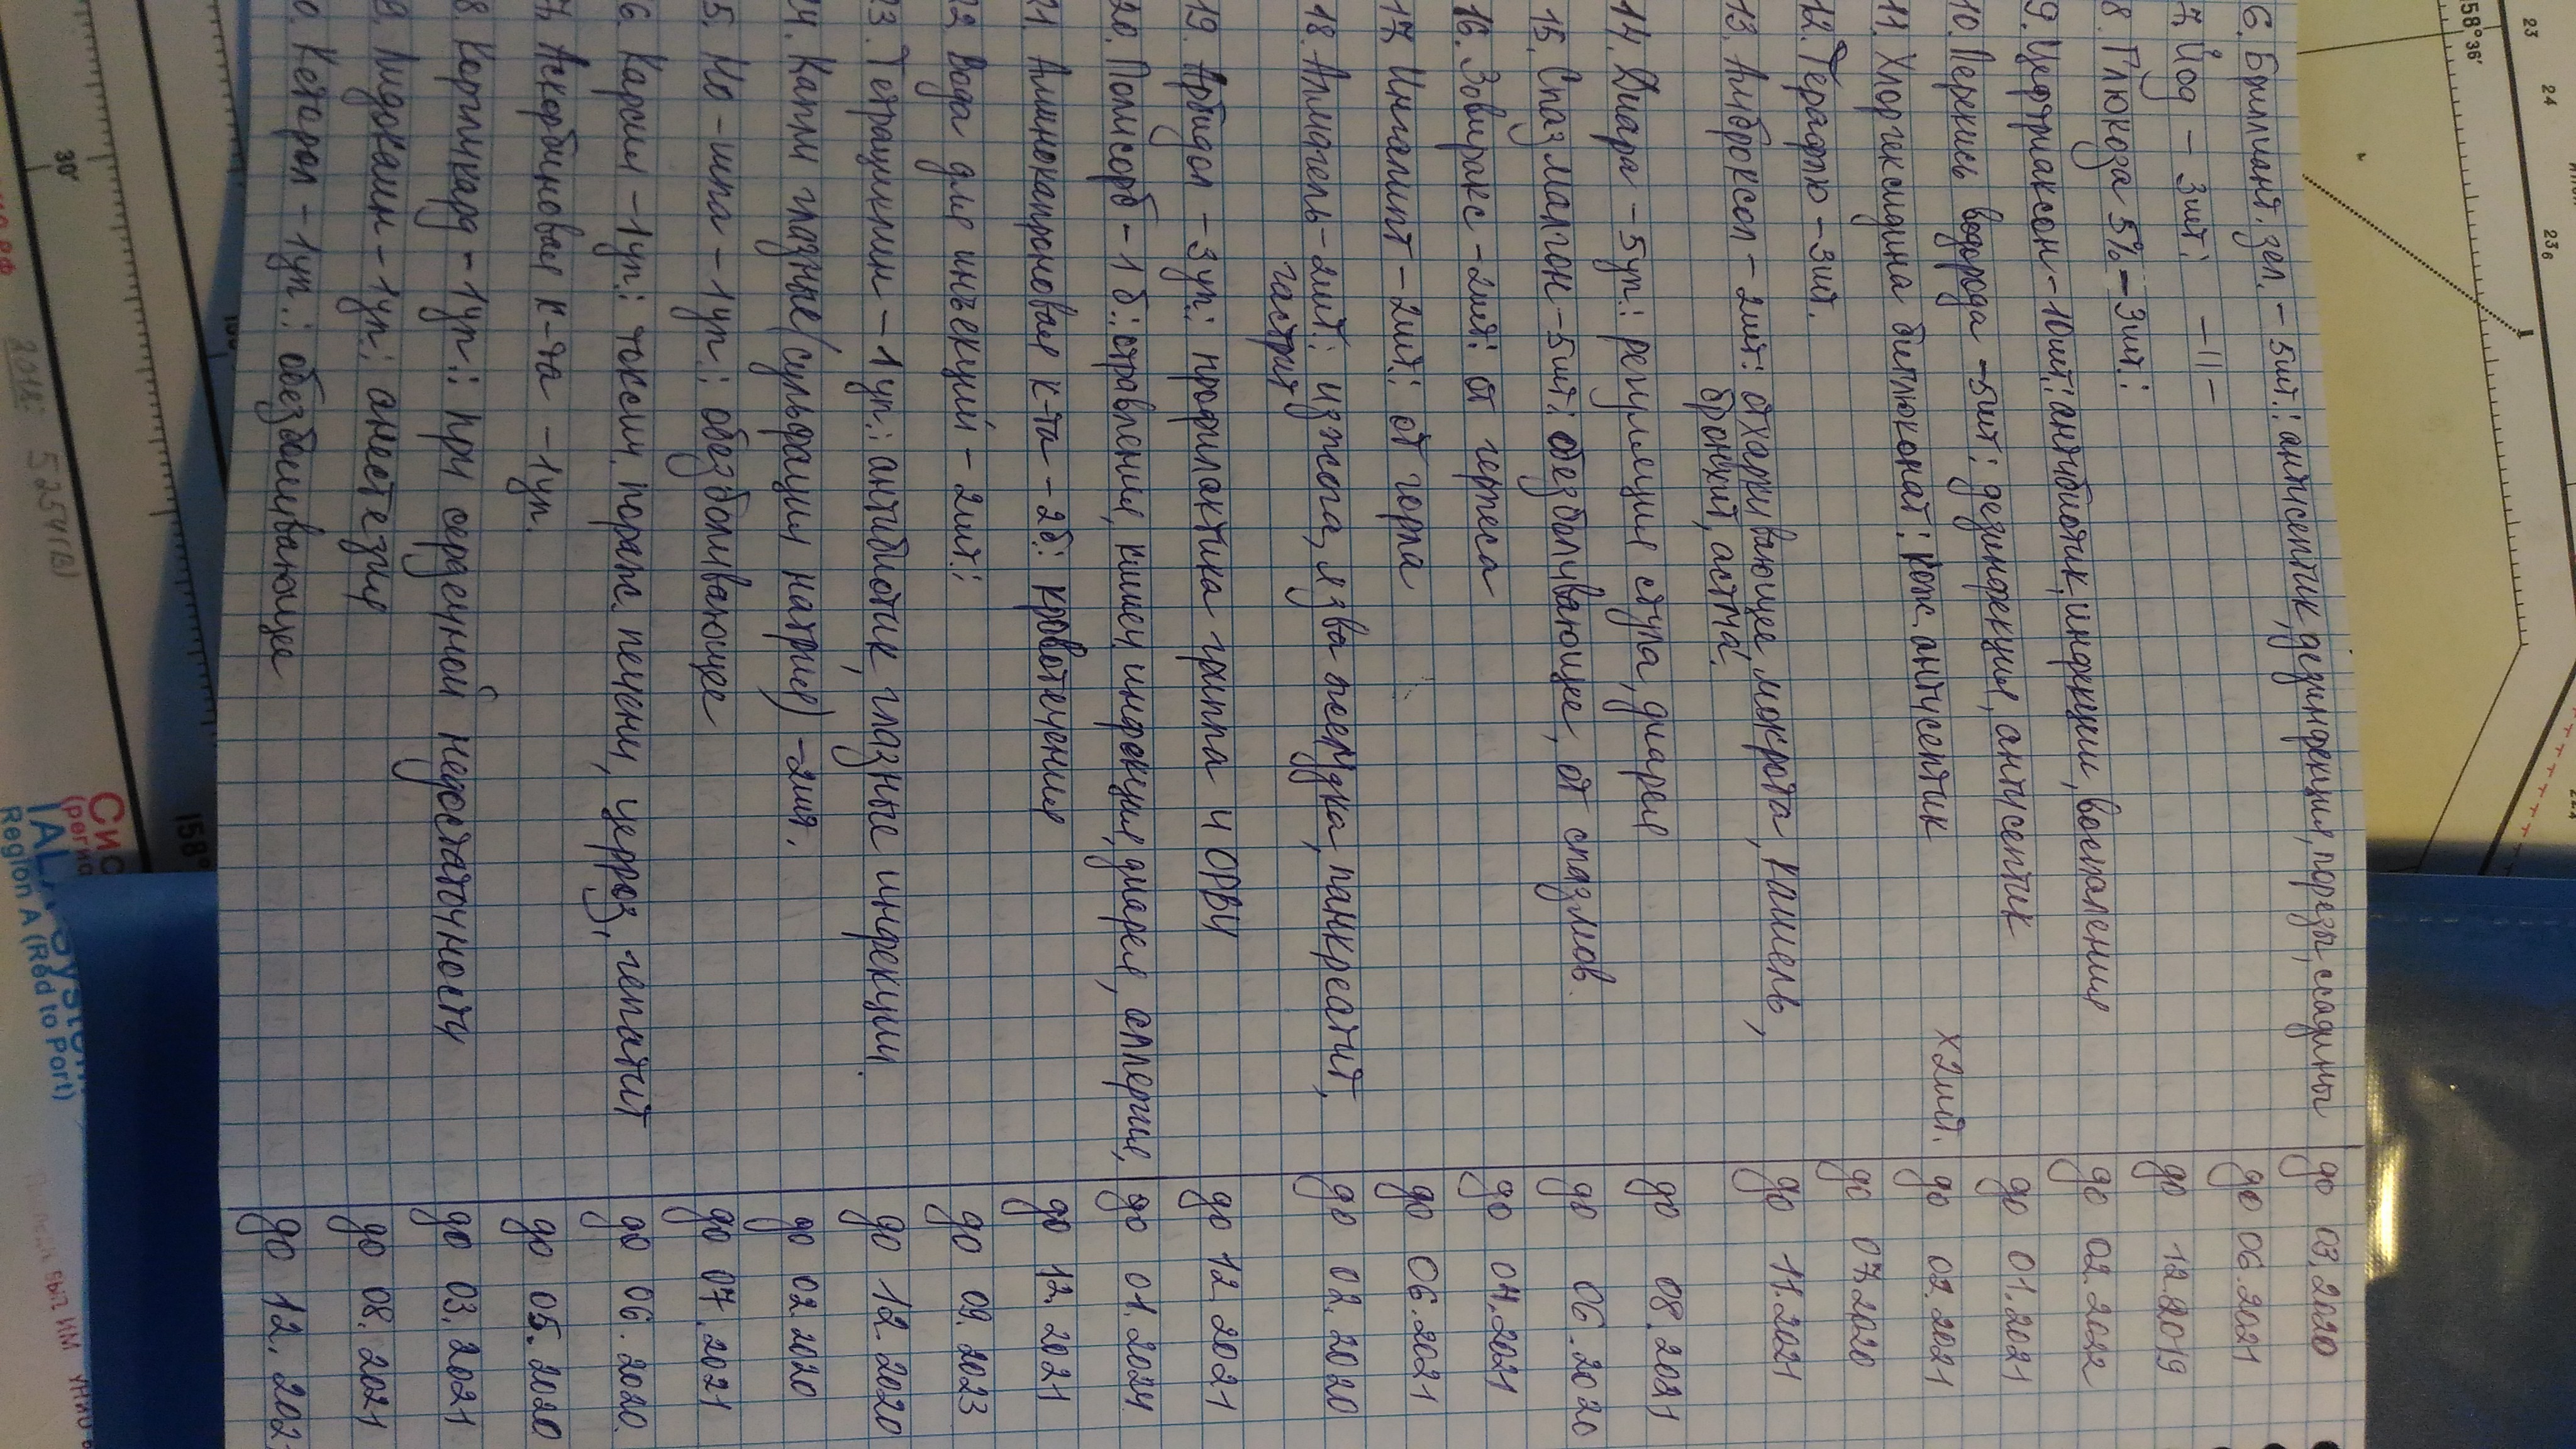 6. Бриллиант. зел. - 5шт.: антисептик, дезинфекция, порезы, ссадины до 03.2020
7. Йод - 3шт.: -||- до 06.2021
8. Глюкоза 5% - 3шт.: до 12.2019
9. Цефтриаксон - 10шт.: антибиотик, инфекции, воспаления до 02.2022
10. Перекись водорода - 5шт.: дезинфекция, антисептик до 01.2021
11. Хлоргексидина биглюконат: кож. антисептик х2шт. до 02.2021
12. Терафлю - 3шт. до 07.2020
13. Амброксол - 2шт.: отхаркивающее, мокрота, кашель, до 11.2021
бронхит, астма.
14. Диара - 5уп.: регуляция стула, диарея до 08.2021
15. Спазмалгон - 5шт.: обезболивающее, от спазмов. до 06.2020
16. Зовиракс - 2шт: от герпеса до 04.2021
17. Ингалипт - 2шт.: от горла до 06.2021
18. Алмагель - 2шт.: изжога, язва желудка, панкреатит, до 02.2020
гастрит
19. Арбидол - 3уп.: профилактика гриппа и ОРВИ до 12.2021
20. Полисорб - 1б.: отравления, кишеч. инфекция, диарея, аллергия, до 01.2024
21. Аминокапроновая к-та - 2б.: кровотечения до 12.2021
22. Вода для инъекций - 2шт.: до 09.2023
23. Тетрациклин - 1уп.: антибиотик, глазные инфекции. до 12.2020
24. Капли глазные (сульфацил натрия) - 2шт. до 02.2020
5. Но-шпа - 1уп.: обезболивающее до 07.2021
6. Карсил - 1уп.: токсич. пораж. печени, цирроз, гепатит до 06.2020
7. Аскорбиновая к-та - 1уп. до 05.2020
8. Кордикард - 1уп.: при сердечной недостаточности до 03.2021
9. Лидокаин - 1уп.: анестезия до 08.2021
0. Кеторол - 1уп.: обезболивающее до 12.202
158°36'
23
24
236
30'
158°
2018: 5254(В)
СИС
(регио
IALA
Region A (Red to Port)